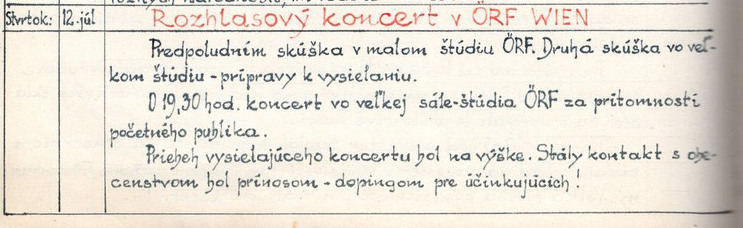 Štvrtok: 12. júl Rozhlasový koncert v ÖRF WIEN
Predpoludním skúška v malom štúdiu ÖRF. Druhá skúška vo veľ-
kom štúdiu - prípravy k vysielaniu.
O 19,30 hod. koncert vo veľkej sále-štúdia ÖRF za prítomnosti
početného publika.
Priebeh vysielajúceho koncertu bol na výške. Stály kontakt s obe-
censtvom bol prínosom - dopingom pre účinkujúcich!